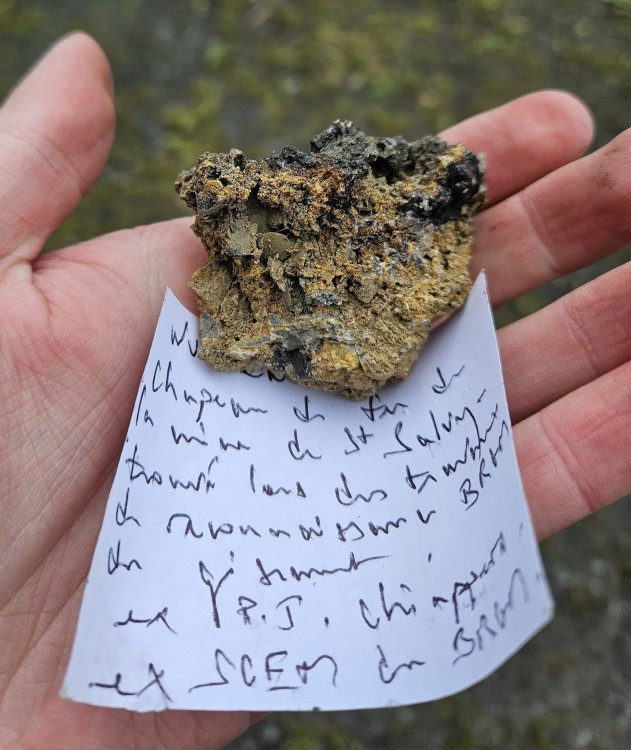 Chapeau de fer de
la mine de St Salvy
trouvé lors des travaux
de reconnaissance BRGM
du gisement.
ex P.J. Chiappero.
ex SCEM du BRGM.